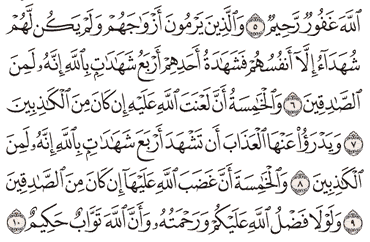 ٱللَّهَ غَفُورٌ رَّحِيمٌ ۝٥ وَٱلَّذِينَ يَرْمُونَ أَزْوَٰجَهُمْ وَلَمْ يَكُن لَّهُمْ
شُهَدَآءُ إِلَّآ أَنفُسُهُمْ فَشَهَٰدَةُ أَحَدِهِمْ أَرْبَعُ شَهَٰدَٰتٍۭ بِٱللَّهِ إِنَّهُۥ لَمِنَ
ٱلصَّٰدِقِينَ ۝٦ وَٱلْخَٰمِسَةُ أَنَّ لَعْنَتَ ٱللَّهِ عَلَيْهِ إِن كَانَ مِنَ ٱلْكَٰذِبِينَ
۝٧ وَيَدْرَؤُا۟ عَنْهَا ٱلْعَذَابَ أَن تَشْهَدَ أَرْبَعَ شَهَٰدَٰتٍۭ بِٱللَّهِ إِنَّهُۥ لَمِنَ
ٱلْكَٰذِبِينَ ۝٨ وَٱلْخَٰمِسَةَ أَنَّ غَضَبَ ٱللَّهِ عَلَيْهَآ إِن كَانَ مِنَ ٱلصَّٰدِقِينَ
۝٩ وَلَوْلَا فَضْلُ ٱللَّهِ عَلَيْكُمْ وَرَحْمَتُهُۥ وَأَنَّ ٱللَّهَ تَوَّابٌ حَكِيمٌ ۝١٠